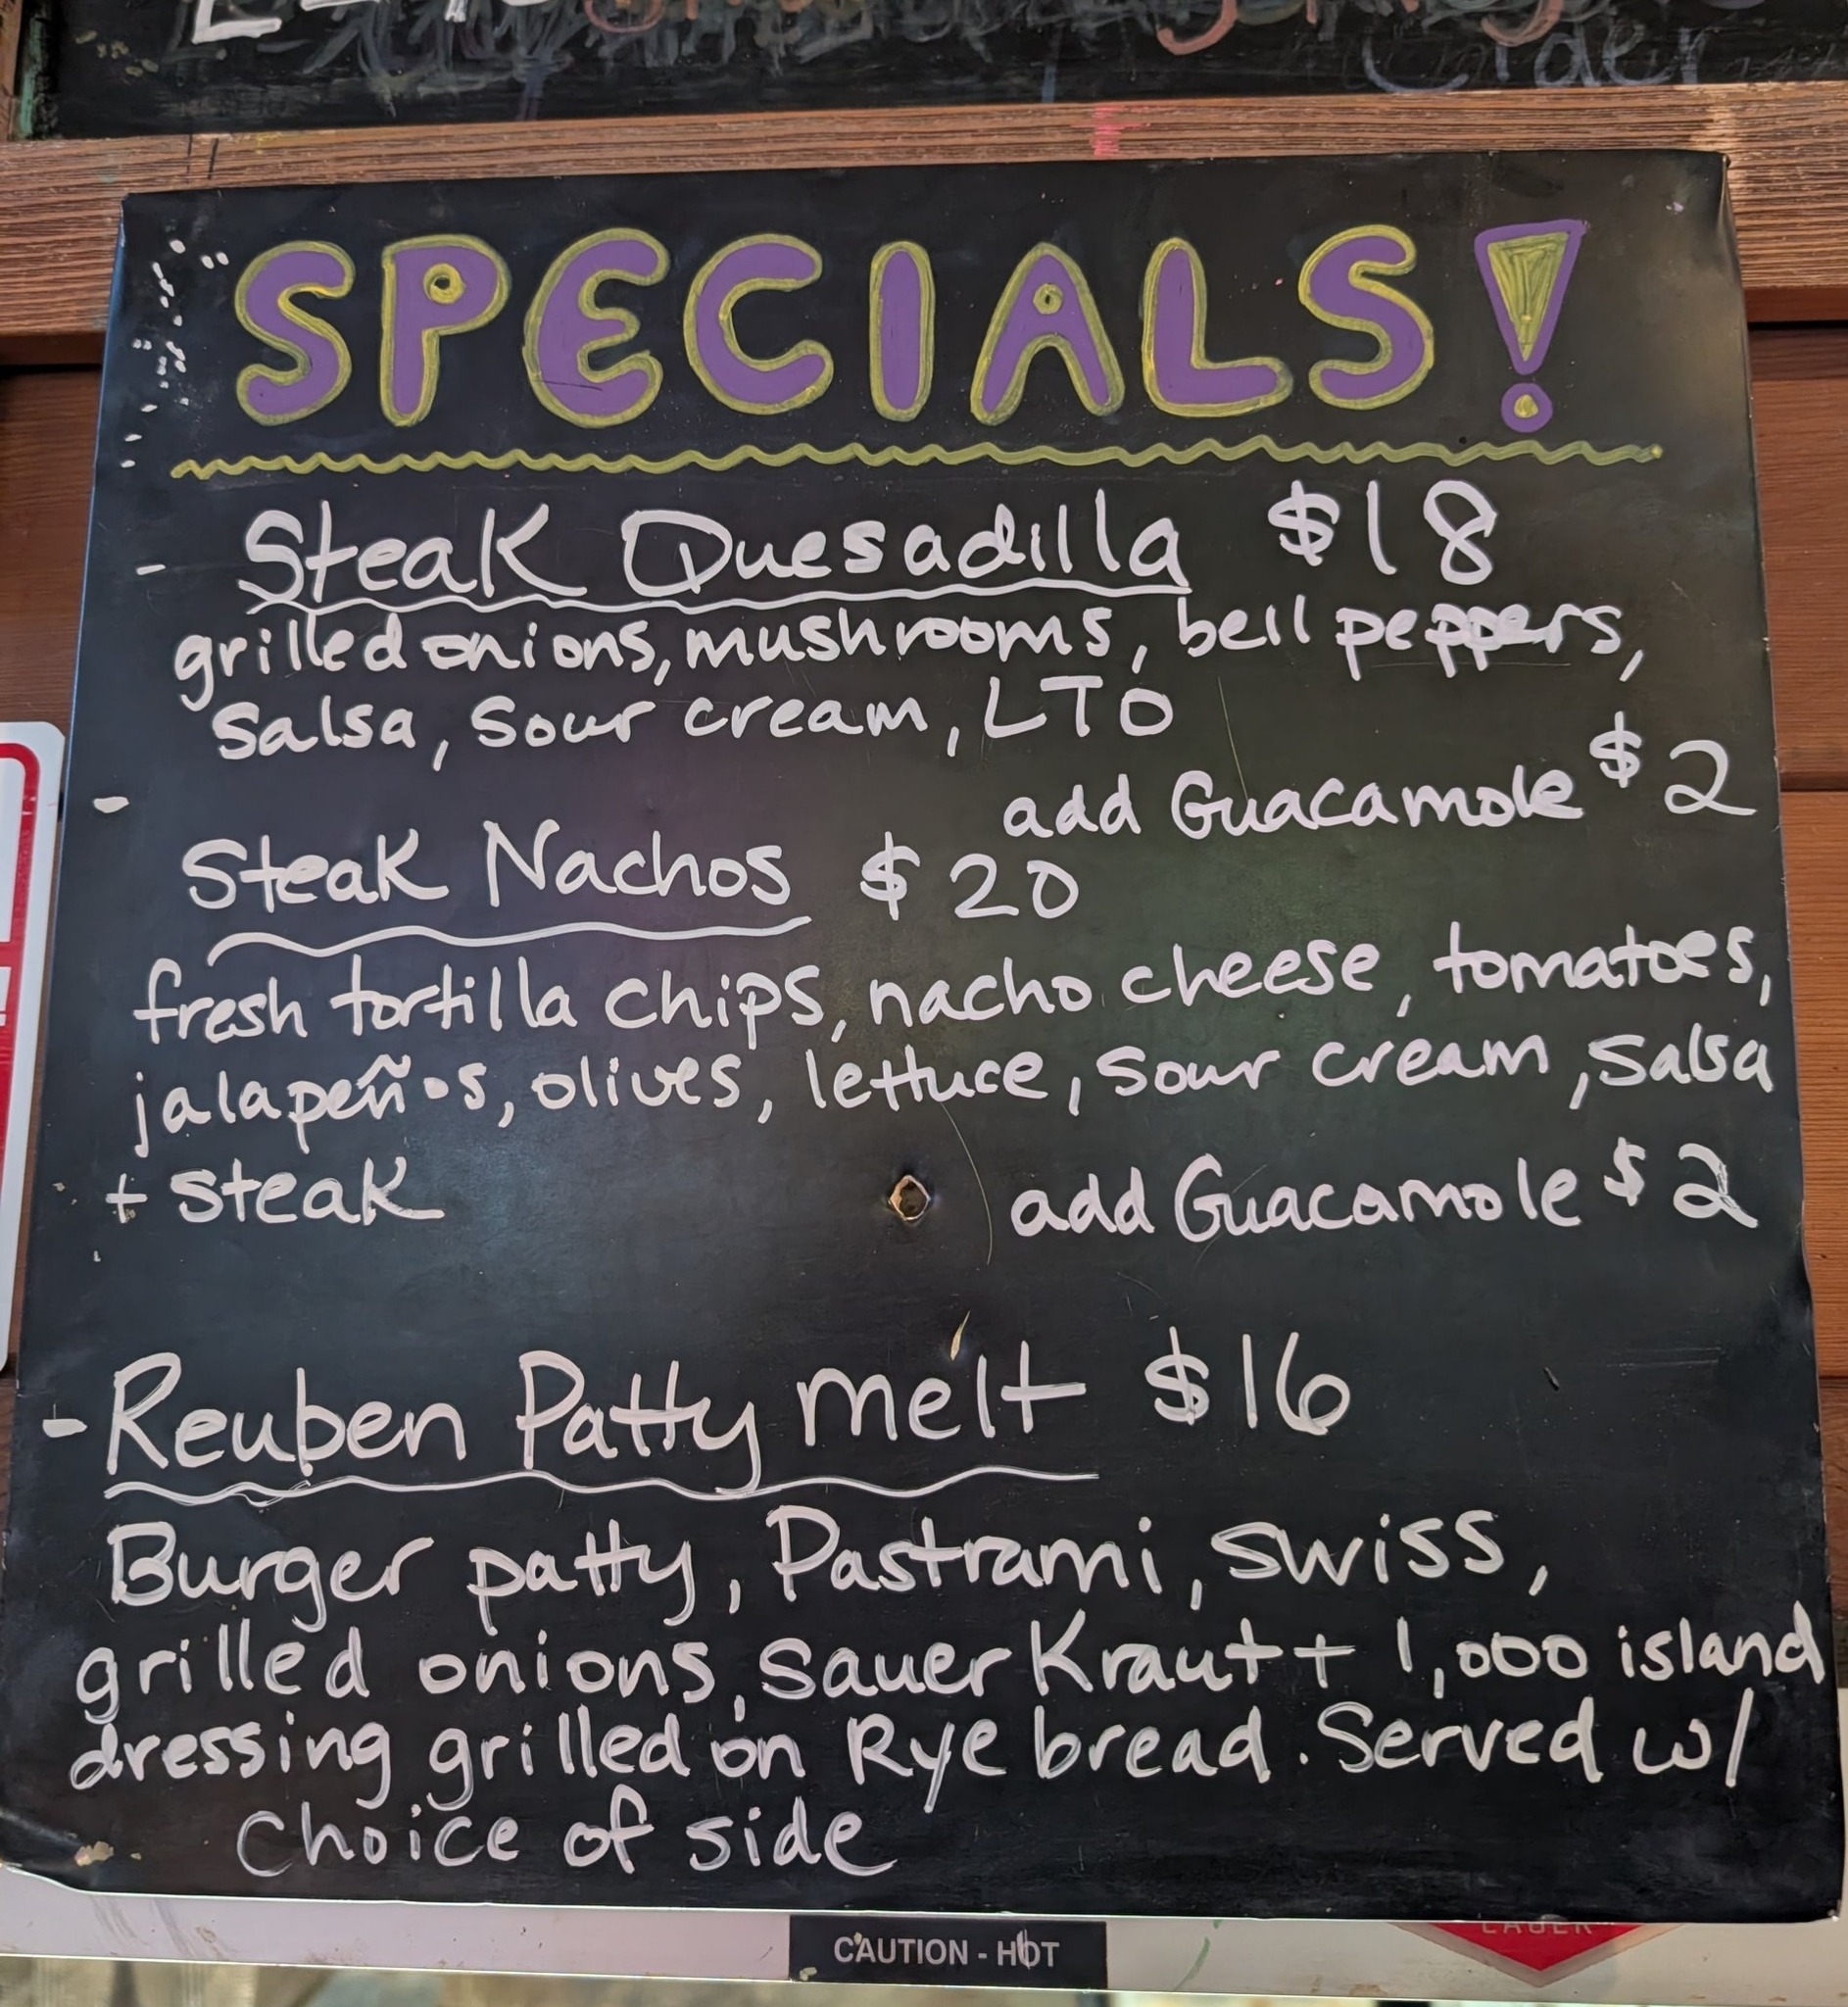 Cider
SPECIALS!
- Steak Quesadilla $18
grilled onions, mushrooms, bell peppers,
salsa, sour cream, LTO
add Guacamole $2
- Steak Nachos $20
fresh tortilla chips, nacho cheese, tomatoes,
jalapeños, olives, lettuce, sour cream, salsa
+ steak
add Guacamole $2
- Reuben Patty melt $16
Burger patty, Pastrami, swiss,
grilled onions, sauerKraut + 1,000 island
dressing grilled on Rye bread. Served w/
choice of side
CAUTION - HOT
LAGER